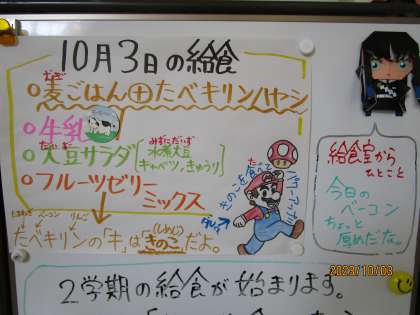 10月3日の給食
むぎ
○麦ごはん⊕たべキリンハヤシ
○牛乳
だいず
○大豆サラダ
みずにだいず
水煮大豆
キャベツ,きゅうり
○フルーツゼリー
ミックス
たまねぎ ベーコン りんご
(しめじ)
たべキリンの「牛」は「きのこ」だよ。
きのこを食べて
パワーアップ
給食室から
ひとこと
今日の
ベーコン
ちょっと
厚めだな。
2学期の給食が始まります。
2023/10/03